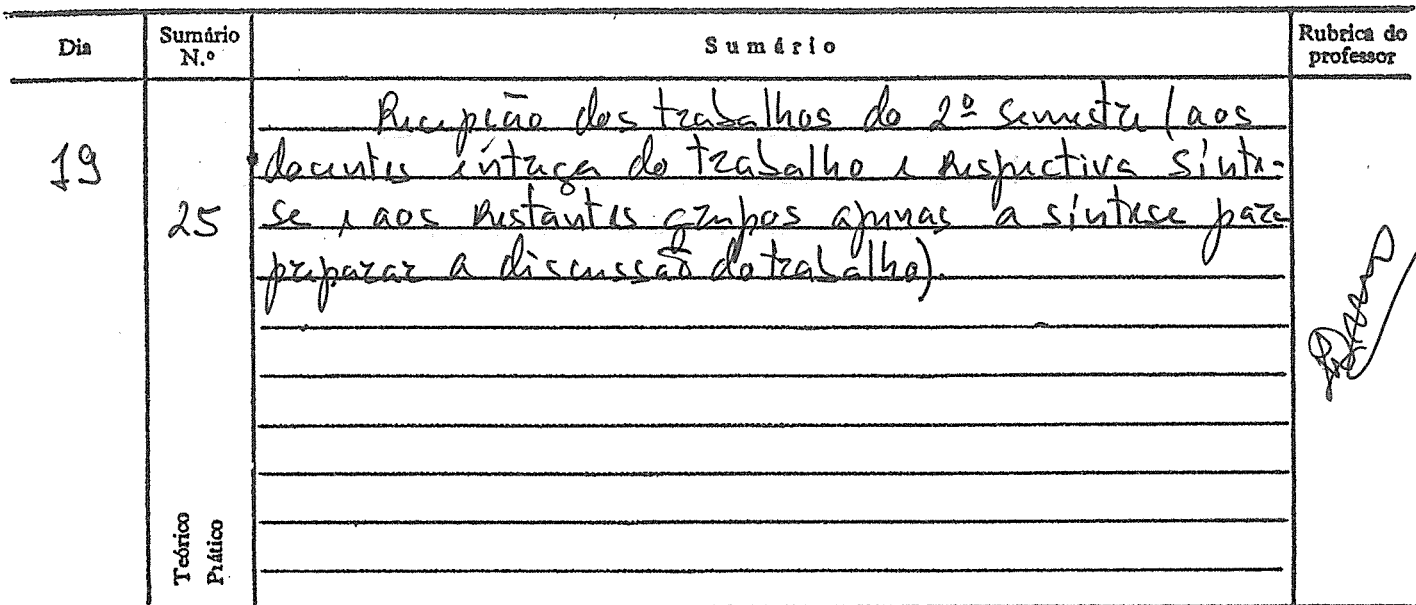 Dia
Sumário N.º
Sumário
Rubrica do professor
19
25
Recepção dos trabalhos do 2º Semestre (aos
docentes entrega do trabalho e respectiva sínte-
se e aos restantes grupos apenas a síntese para
preparar a discussão do trabalho).
Teórico
Prático